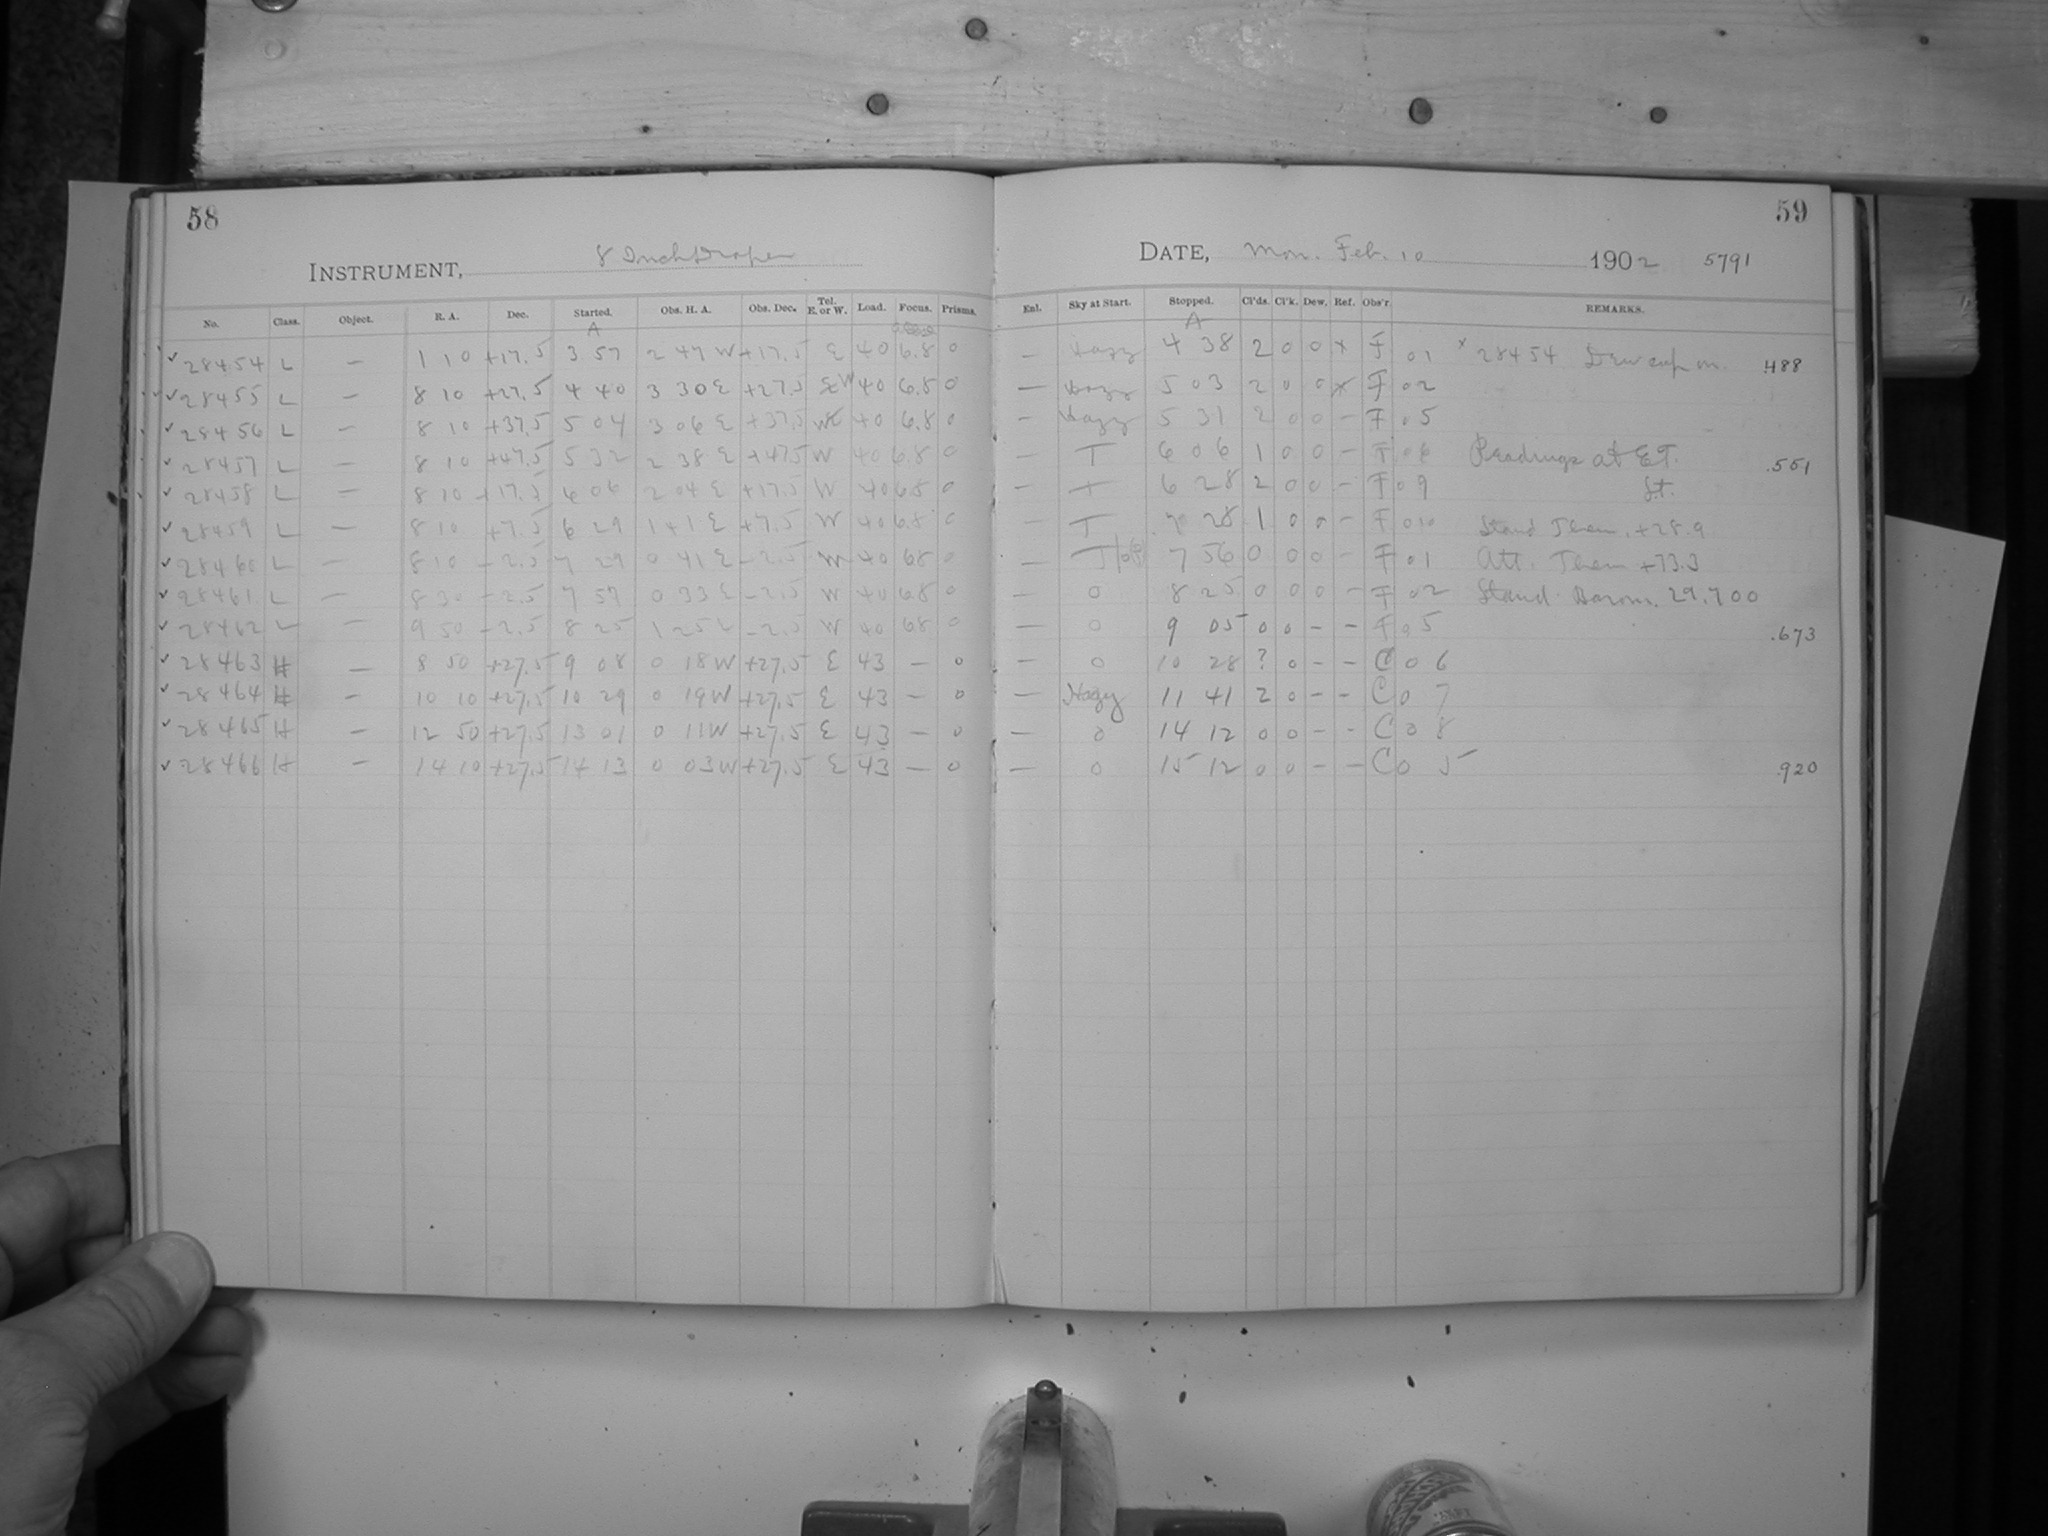 58
INSTRUMENT, 8 Inch Draper
No. Class. Object. R. A. Dec. Started. Obs. H. A. Obs. Dec. Tel. E. or W. Load. Focus. Prisms.
A
✓ 28454 L — 1 10 +17.5 3 57 2 47 W +17.5 E 40 6.8 0
✓ 28455 L — 8 10 +27.5 4 40 3 30 E +27.5 W 40 6.8 0
✓ 28456 L — 8 10 +37.5 5 04 3 06 E +37.5 W 40 6.8 0
✓ 28457 L — 8 10 +47.5 5 32 2 38 E +47.5 W 40 6.8 0
✓ 28458 L — 8 10 +17.5 6 06 2 04 E +17.5 W 40 6.8 0
✓ 28459 L — 8 10 +7.5 6 29 1 41 E +7.5 W 40 6.8 0
✓ 28460 L — 8 10 -2.5 7 29 0 41 E -2.5 W 40 68 0
✓ 28461 L — 8 30 -2.5 7 57 0 33 E -2.5 W 40 68 0
✓ 28462 L — 9 50 -2.5 8 25 1 25 E -2.5 W 40 68 0
✓ 28463 H — 8 50 +27.5 9 08 0 18 W +27.5 E 43 — 0
✓ 28464 H — 10 10 +27.5 10 29 0 19 W +27.5 E 43 — 0
✓ 28465 H — 12 50 +27.5 13 01 0 11 W +27.5 E 43 — 0
✓ 28466 H — 14 10 +27.5 14 13 0 03 W +27.5 E 43 — 0
59
DATE, Mon. Feb. 10 1902 5791
Enl. Sky at Start. Stopped. Cl'ds. Cl'k. Dew. Ref. Obs'r. REMARKS.
A
— Hazy 4 38 2 0 0 x F 01 x 28454 Dew cap on. .488
— Hazy 5 03 2 0 0 x F 02
— Hazy 5 31 2 0 0 - F 05
— T 6 06 1 0 0 - F 06 Readings at E.T. .551
— T 6 28 2 0 0 - F 09 St.
— T 7 28 1 0 0 - F 010 Stand Therm. +28.9
— T 7 56 0 0 0 - F 01 Att. Therm +73.3
— 0 8 25 0 0 0 - F 02 Stand. Barom. 29.700
— 0 9 05 0 0 - - F 05 .673
— 0 10 28 ? 0 - - C 06
— Hazy 11 41 2 0 - - C 07
— 0 14 12 0 0 - - C 08
— 0 15 12 0 0 - - C 05 .920